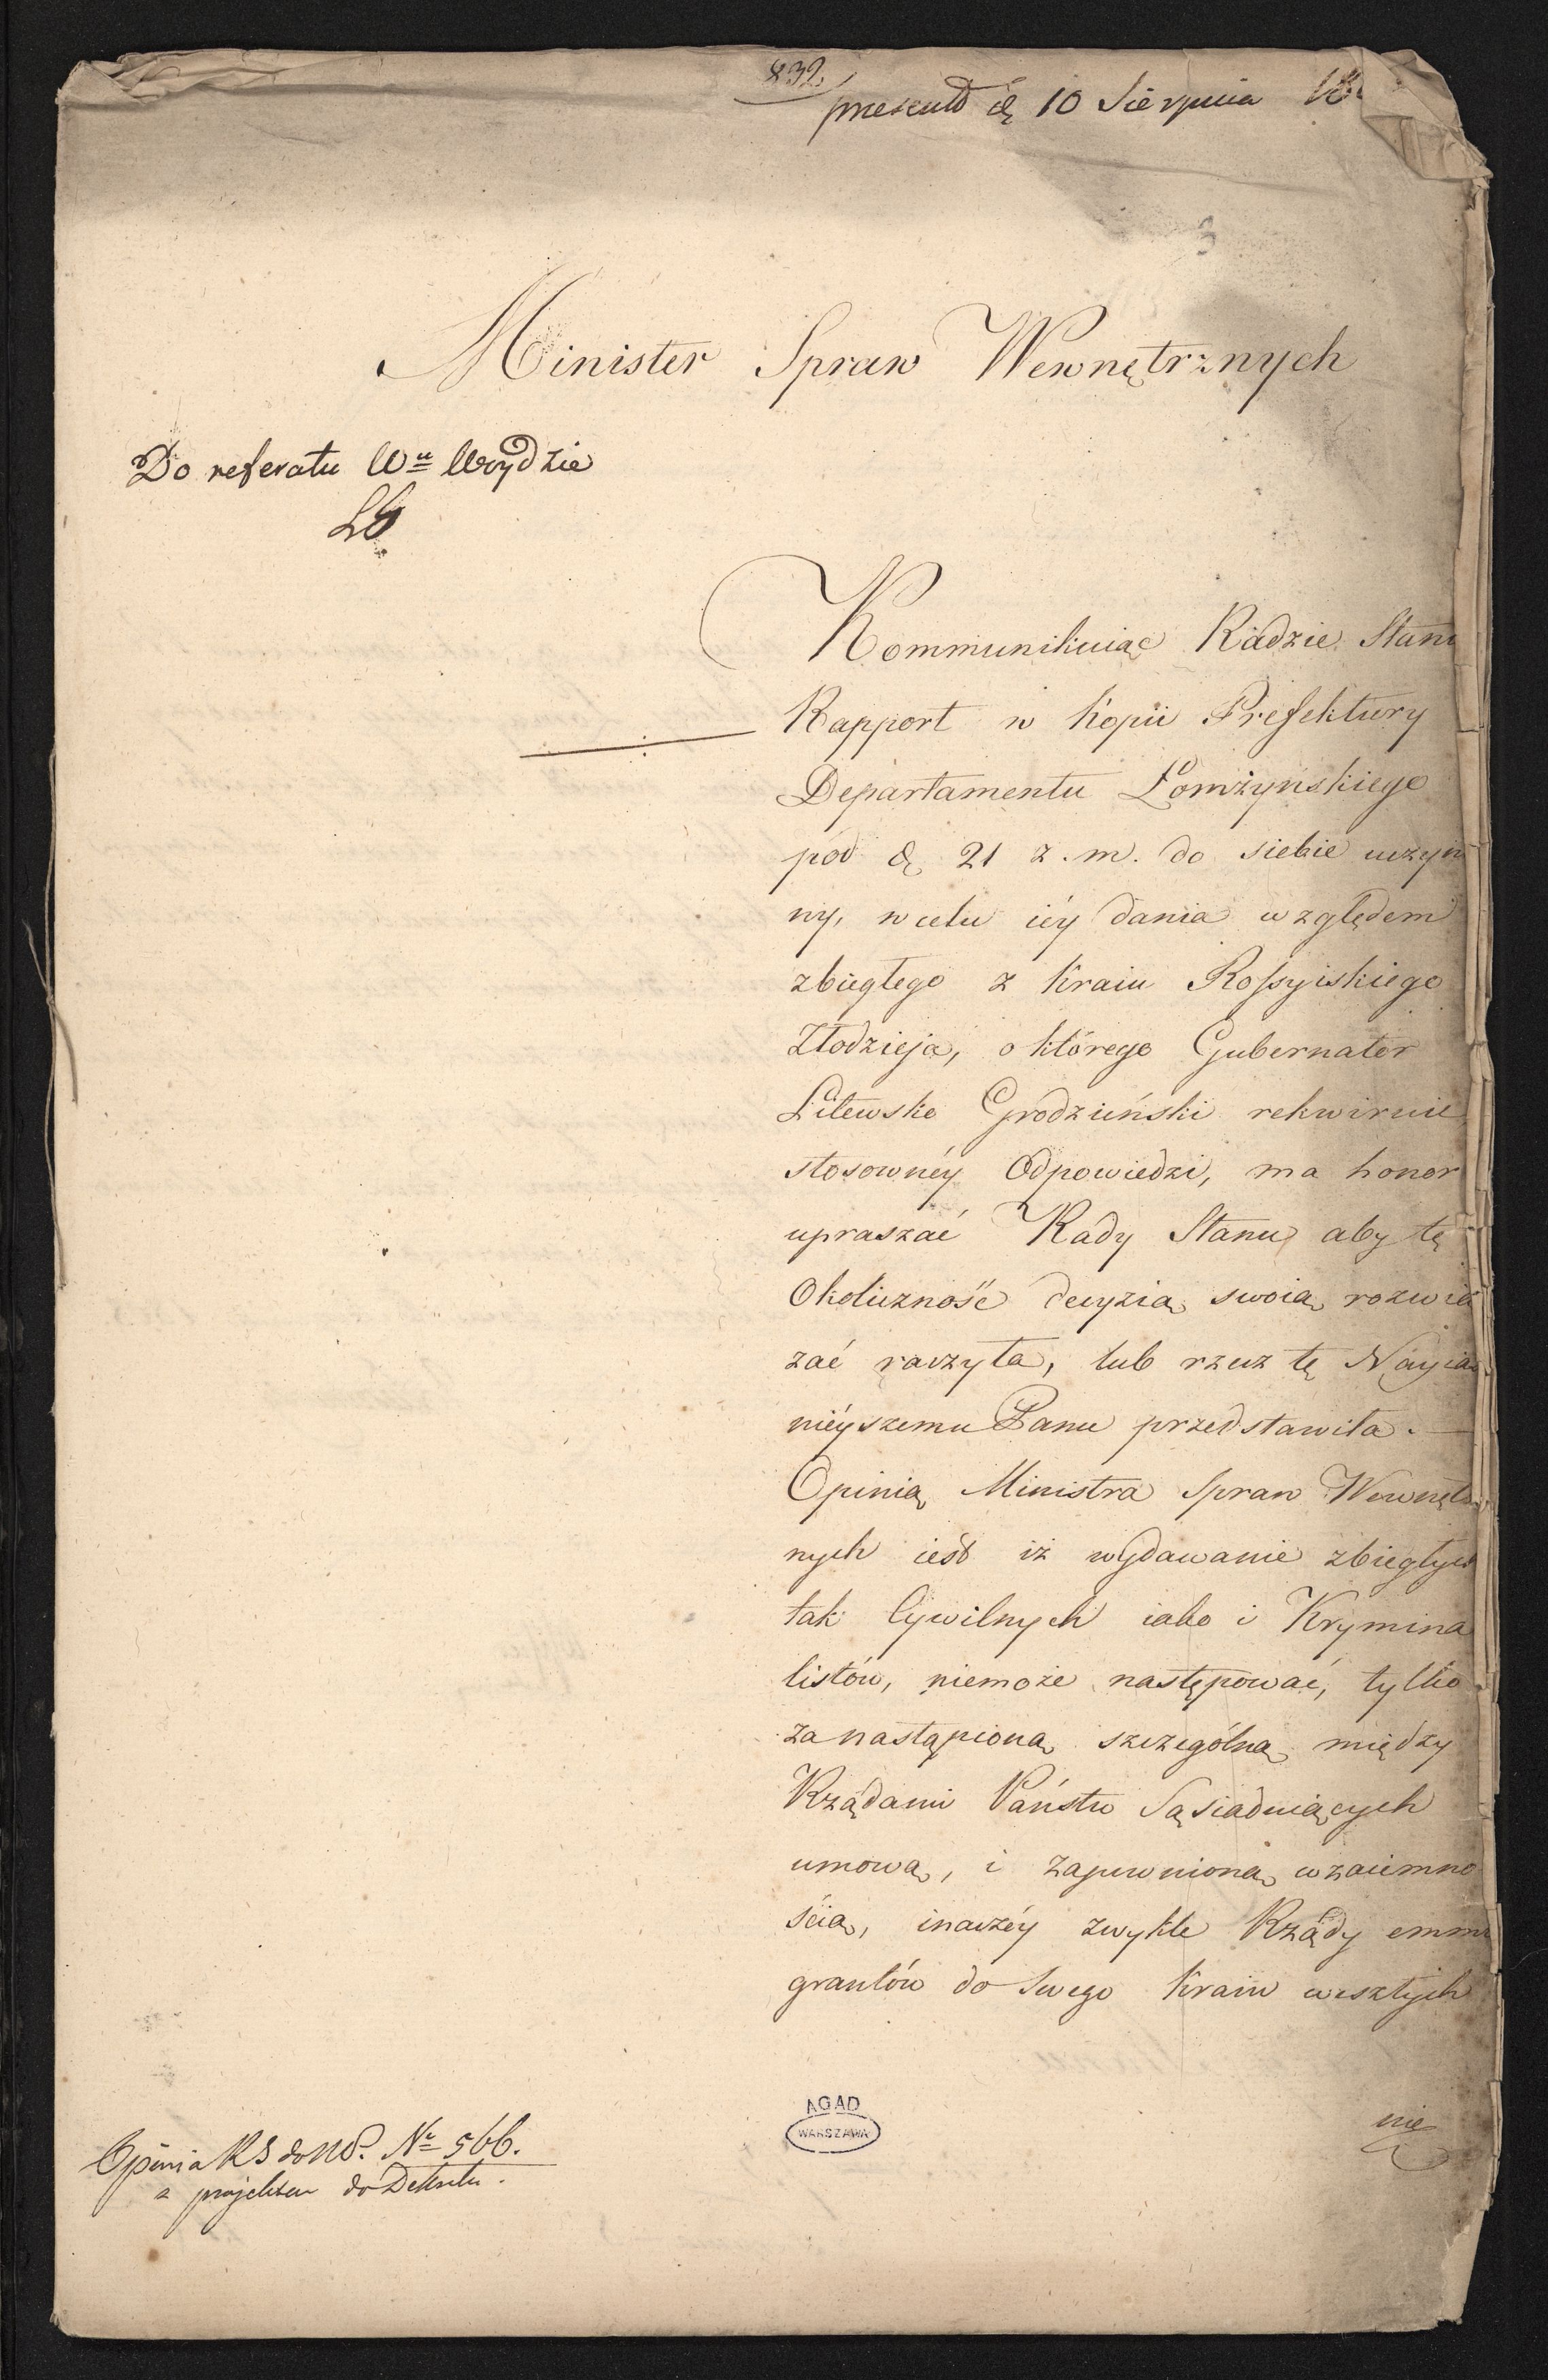 832.
present d. 10 Sierpnia 18
Minister Spraw Wewnętrznych
Do referatu Wu Woydzie
Kommunikuiąc Radzie Stanu
Rapport w kopii Prefektury
Departamentu Łomżyńskiego
pod d. 21 z. m. do siebie uczyn
ny, w celu iéy dania względem
zbiegłego z kraiu Rossyiskiego
Złodzieja, o którego Gubernator
Litewsko Grodzieński rekwiruie
stosownéy Odpowiedzi, ma honor
upraszać Rady Stanu aby tę
Okoliczność decyzią swoią rozwią
zać raczyła, lub rzecz tę Nayia
nieyszemu Panu przedstawiła. —
Opinią Ministra Spraw Wewnętrz
nych iest iż wydawanie zbiegłych
tak Cywilnych iako i Krymina
listów, niemoże następować, tylko
za nastąpioną szczególną między
Rządami Państw Sąsiaduiących
umową, i zapewnioną wzaiemno
ścią, inaczéy zwykle Rządy emmi
grantów do Swego Kraiu weszłych
nie
AGAD
WARSZAWA
Opinia RS do No. Nr 566.
z projektem do Dekretu.